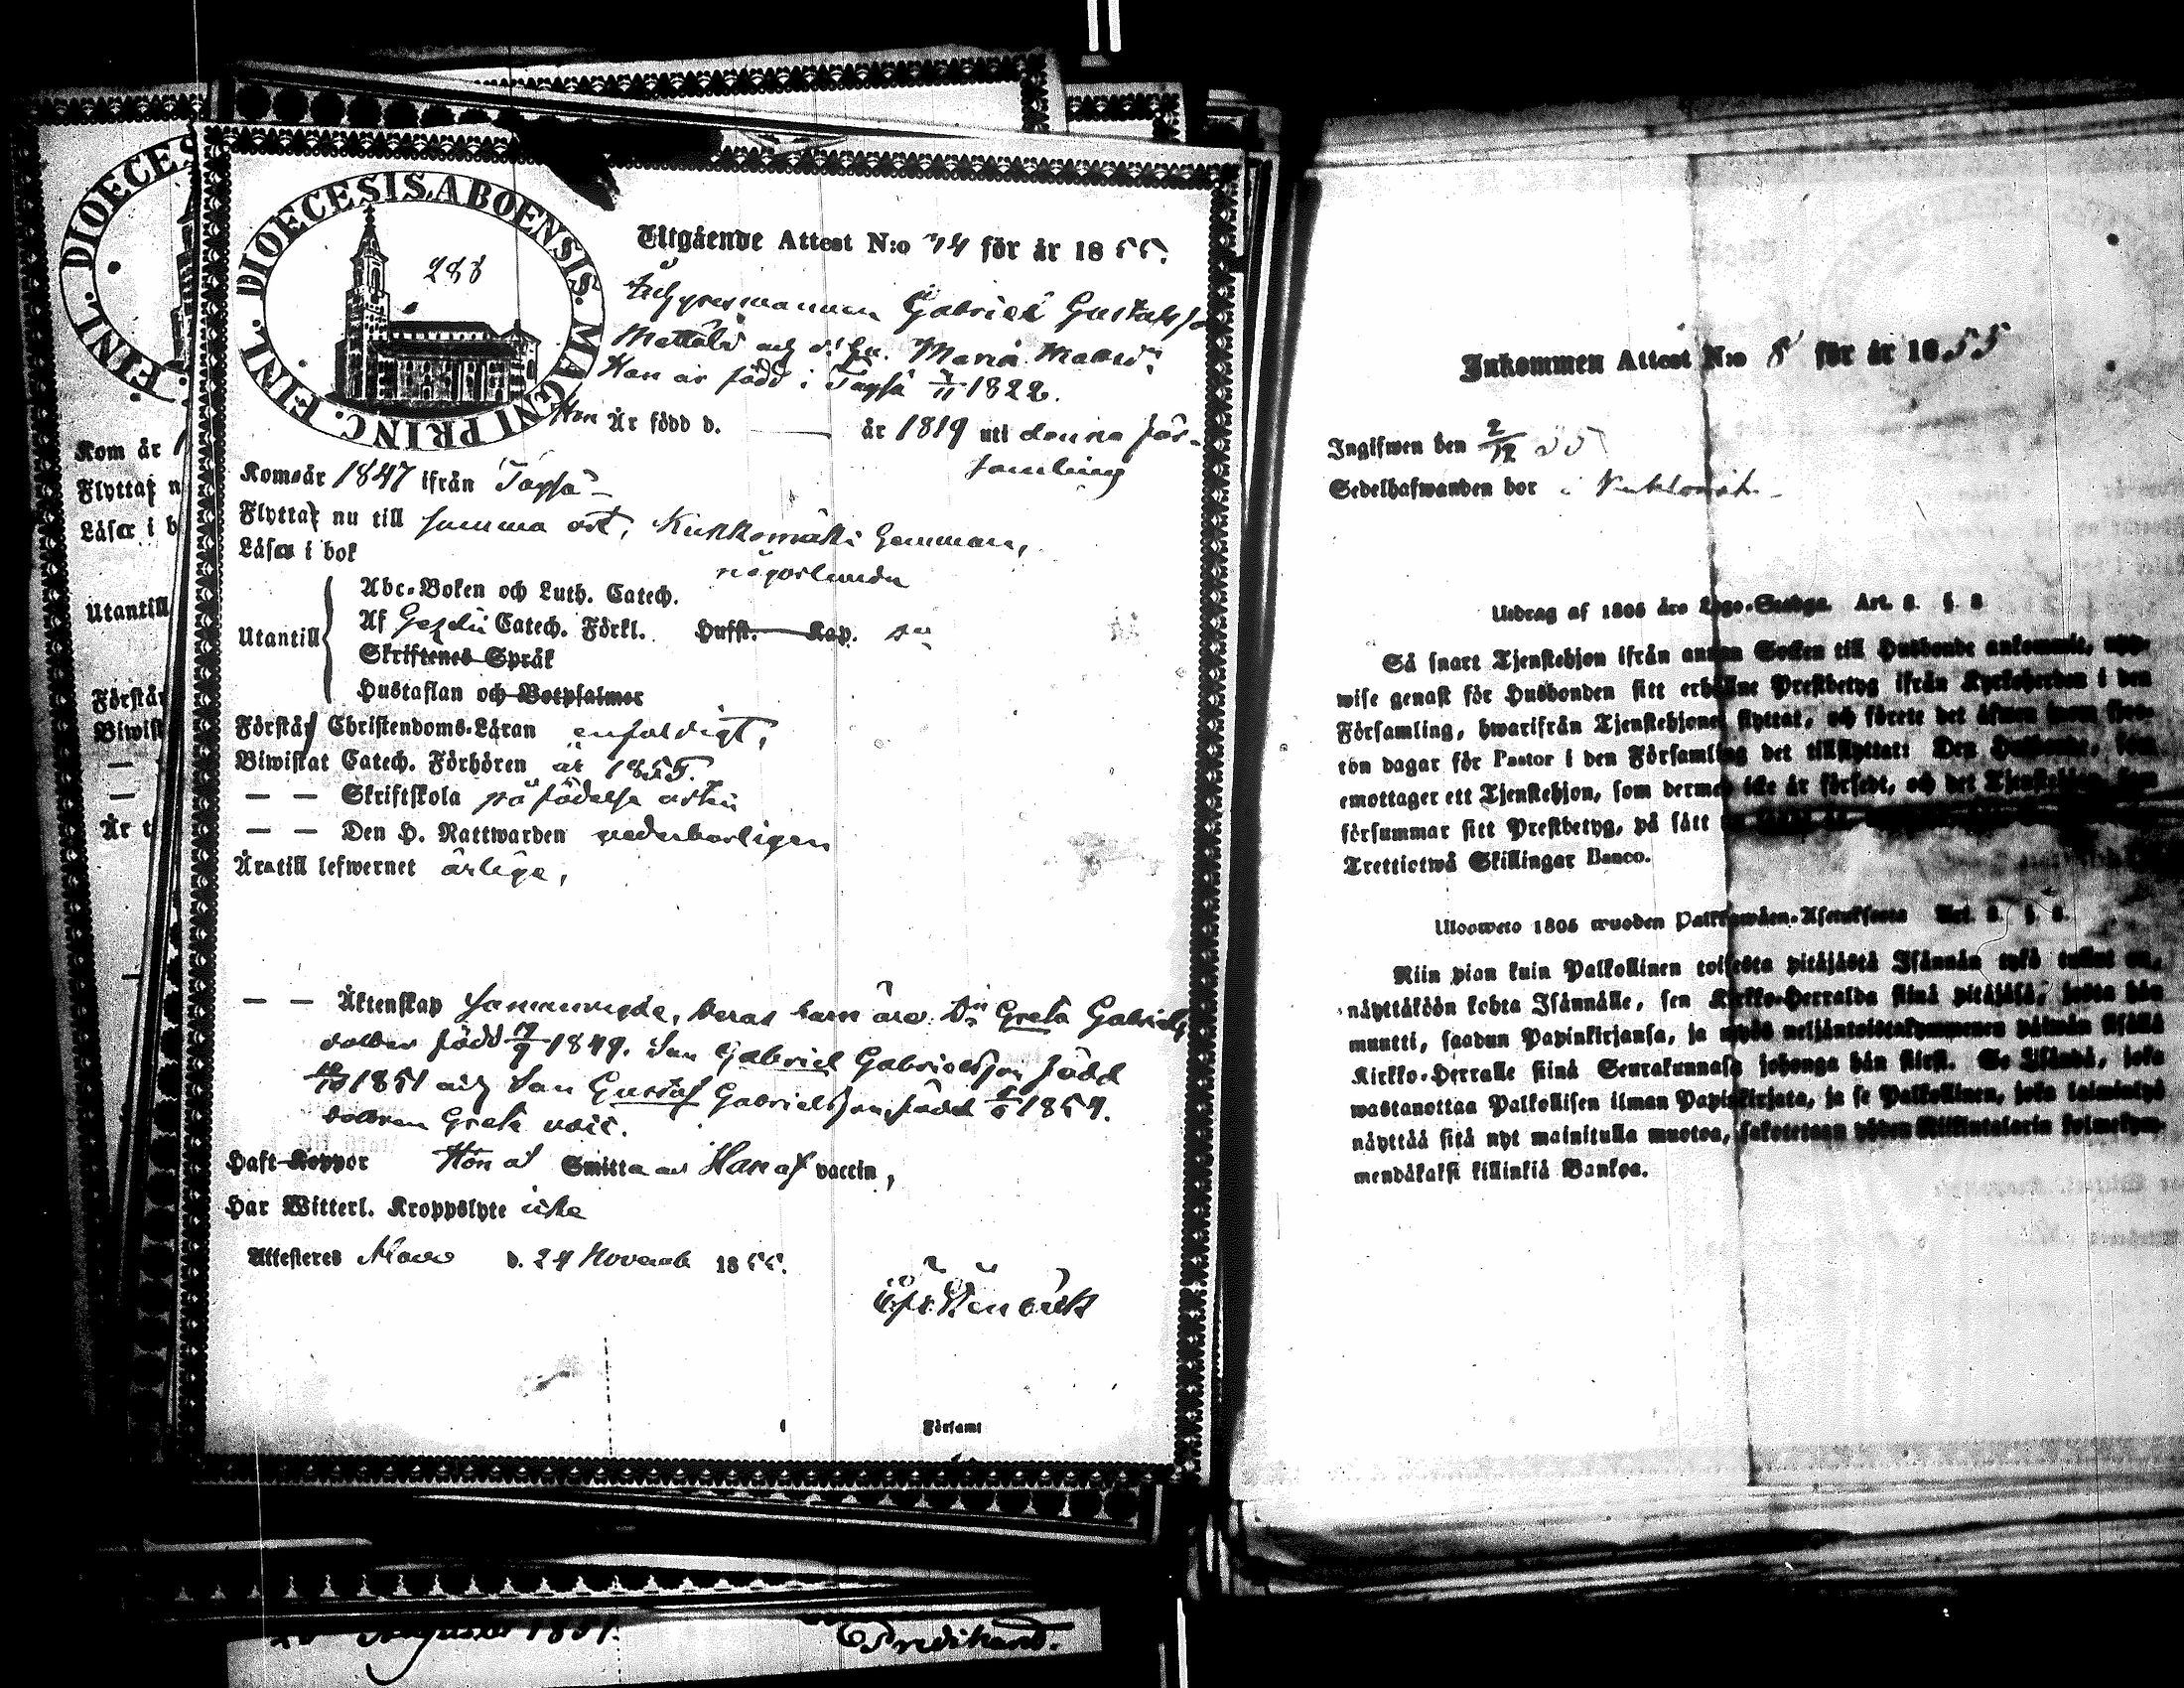 DIOECESIS ABOENSIS. MAGNI PRINC. FINL.
288
Utgående Attest N:o 74 för år 1855.
Gabriel Gustafsson
Maria
Han är född i Töysä 1822.
Hon Är född d. — år 1819 uti denna för-
samling
Kom år 1847 ifrån Töysä
Flyttar nu till samma ort, Kukkomäki gemensam,
Läser i bok någorlunda
Utantill
Abc-Boken och Luth. Catech.
Af Catech. Förkl. Hufst. Kap.
Skriftenes Språk
Hustaflan och Botpsalmer
Förstår Christendoms-Läran enfaldigt,
Biwistat Catech. Förhören år 1855.
— — Skriftskola på födelse orten
— — Den H. Nattwarden vederbörligen
Är till lefwernet ärlige,
— — Äktenskap sammanvigde, deras barn äro: Dn Greta Gabriels
dotter född 1849. Son Gabriel Gabrielsson född
1851 och Son Gustaf Gabrielsson född 1854.
dottren Greta
Haft Koppor Hon af Smitta Han af vaccin,
Har Witterl. Kroppslyte icke
Attesteres d. 24 November 1855.
Församl
DIOECES
FINL.
Kom år 1
Flyttar n
Läser i b
Utantill
Förstår
Biwist
—
—
Är t
Augusti 1851.
Inkommen Attest N:o 8 för år 1855
Ingifwen den 2/12 55
Sedelhafwanden bor i
Utdrag af 1805 års Lego-Stadga. Art. 8. §. 8
Så snart Tjenstehjon ifrån annan Socken till Husbonde ankommit, upp-
wise genast för Husbonden sitt erhållne Prestbetyg ifrån Kyrkoherden i den
Församling, hwarifrån Tjenstehjonet flyttat, och förete det äfwen inom fjor-
ton dagar för Pastor i den Församling det tillflyttat: Den Husbonde, som
emottager ett Tjenstehjon, som dermed icke är försedt, och det Tjenstehjon, som
försummar sitt Prestbetyg, på sätt
Trettiotwå Skillingar Banco.
Ulosweto 1805 wuoden Palkkawäen-Asetuksesta Art. 8. §. 8.
Niin pian kuin Palkollinen toisesta pitäjästä Isännän tykö tullut on,
näyttäköön kohta Isännälle, sen Kirkko-Herralda siinä pitäjäsä, josta hän
muutti, saadun Papinkirjansa, ja myös neljäntoistakymmenen päiwän sisällä
Kirkko-Herralle siinä Seurakunnasa johonga hän siirsi. Se Isändä, joka
wastanottaa Palkollisen ilman Papinkirjata, ja se Palkollinen, joka laiminlyö
näyttää sitä nyt mainitulla muotoa, sakotetaan yhden Riikintalarin kolmekym-
mendäkaksi killinkiä Bankoa.